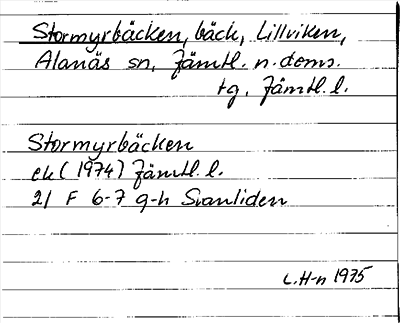 Stormyrbäcken, bäck, Lillviken,
Alanäs sn, Jämtl. n. doms.
tg, Jämtl. l.
Stormyrbäcken
ek (1974) Jämtl. l.
21 F 6-7 g-h Svanliden
L.H-n 1975